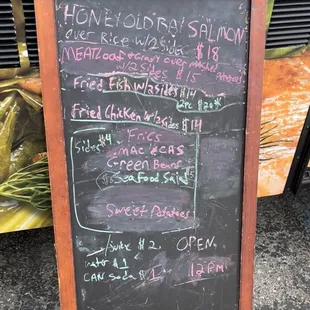 "HONEY OLD BAY SALMON
over Rice w/2 Sides $18
MEATLoaf gravy over mashed Potatoes
w/2 Sides $15
Fried Fish w/2 Sides $14
2pc $20
Fried Chicken w/2 Sides $14
Sides $4
Fries
MAC & CAS
Green Beans
Seafood Salad
Sweet Potatoes
Juice $2
OPEN
water $1
12pm
CAN Soda $1